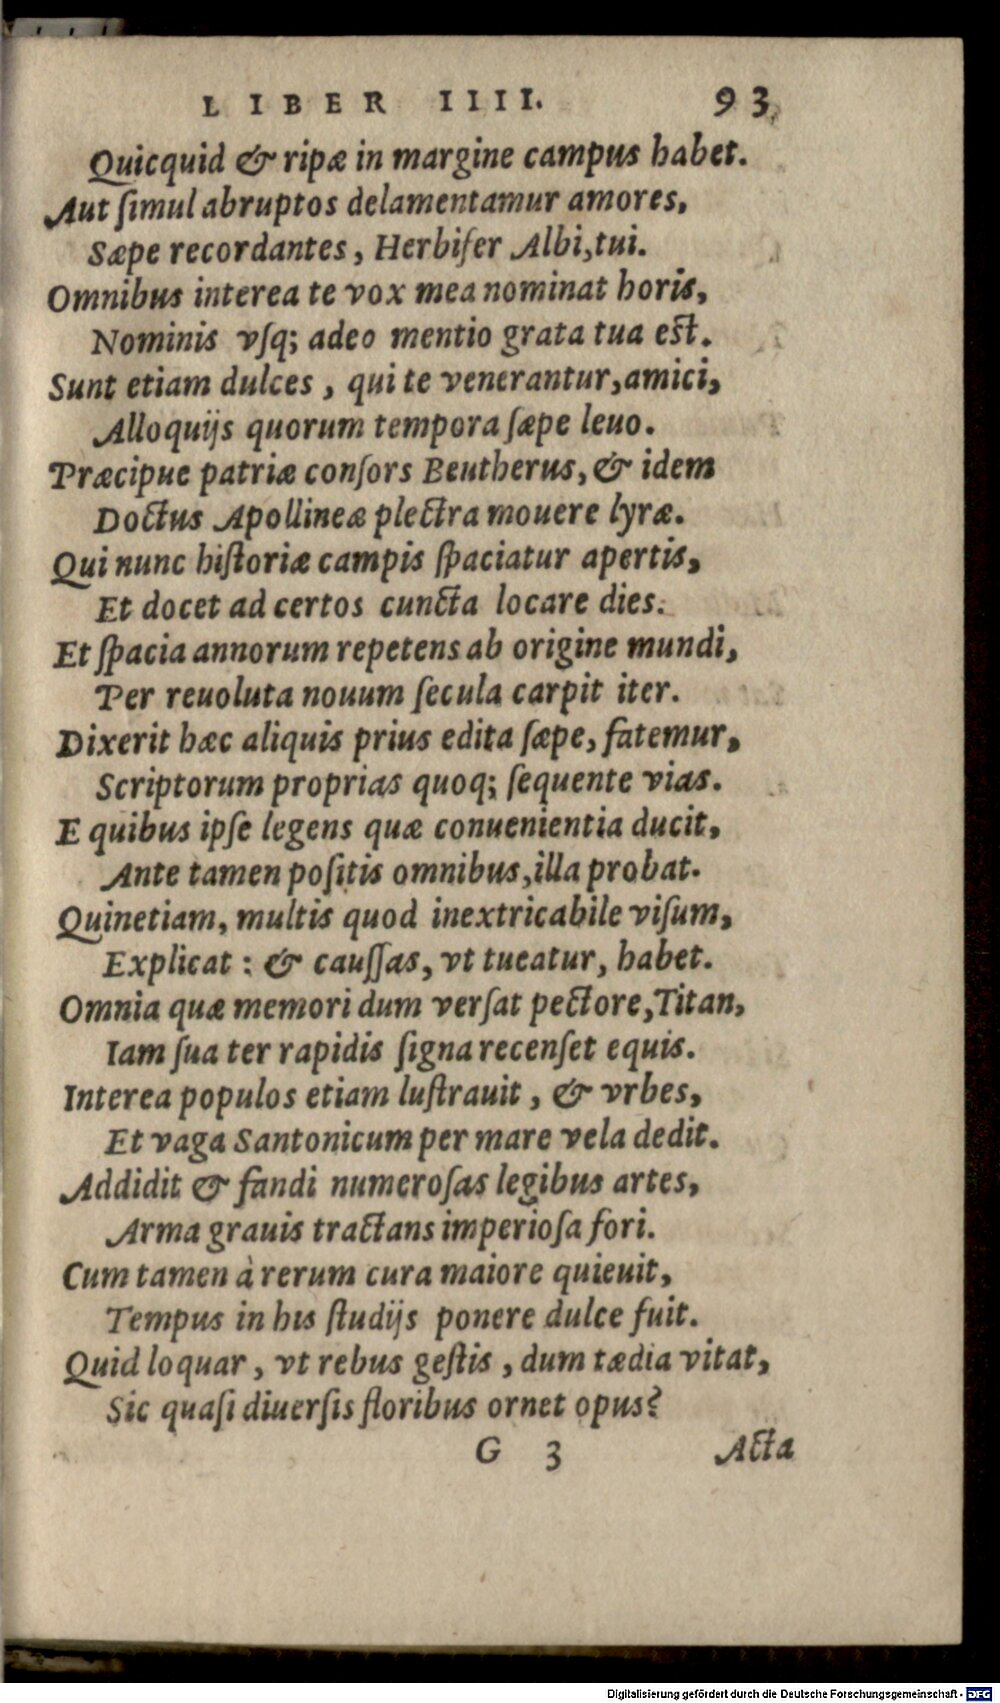 LIBER IIII. 93
Quicquid & ripæ in margine campus habet.
Aut ſimul abruptos delamentamur amores,
Sæpe recordantes, Herbifer Albi, tui.
Omnibus interea te vox mea nominat horis,
Nominis vſq; adeo mentio grata tua est.
Sunt etiam dulces, qui te venerantur, amici,
Alloquijs quorum tempora ſæpe leuo.
Præcipue patriæ conſors Beutherus, & idem
Doctus Apollineæ plectra mouere lyræ.
Qui nunc hiſtoriæ campis ſpaciatur apertis,
Et docet ad certos cuncta locare dies.
Et ſpacia annorum repetens ab origine mundi,
Per reuoluta nouum ſecula carpit iter.
Dixerit hæc aliquis prius edita ſæpe, fatemur,
Scriptorum proprias quoq; ſequente vias.
E quibus ipſe legens quæ conuenientia ducit,
Ante tamen poſitis omnibus, illa probat.
Quinetiam, multis quod inextricabile viſum,
Explicat: & cauſſas, vt tueatur, habet.
Omnia quæ memori dum verſat pectore, Titan,
Iam ſua ter rapidis ſigna recenſet equis.
Interea populos etiam luſtrauit, & vrbes,
Et vaga Santonicum per mare vela dedit.
Addidit & fandi numeroſas legibus artes,
Arma grauis tractans imperioſa fori.
Cum tamen à rerum cura maiore quieuit,
Tempus in his ſtudijs ponere dulce fuit.
Quid loquar, vt rebus geſtis, dum tædia vitat,
Sic quaſi diuerſis floribus ornet opus?
G 3 Acta
Digitalisierung gefördert durch die Deutsche Forschungsgemeinschaft - DFG